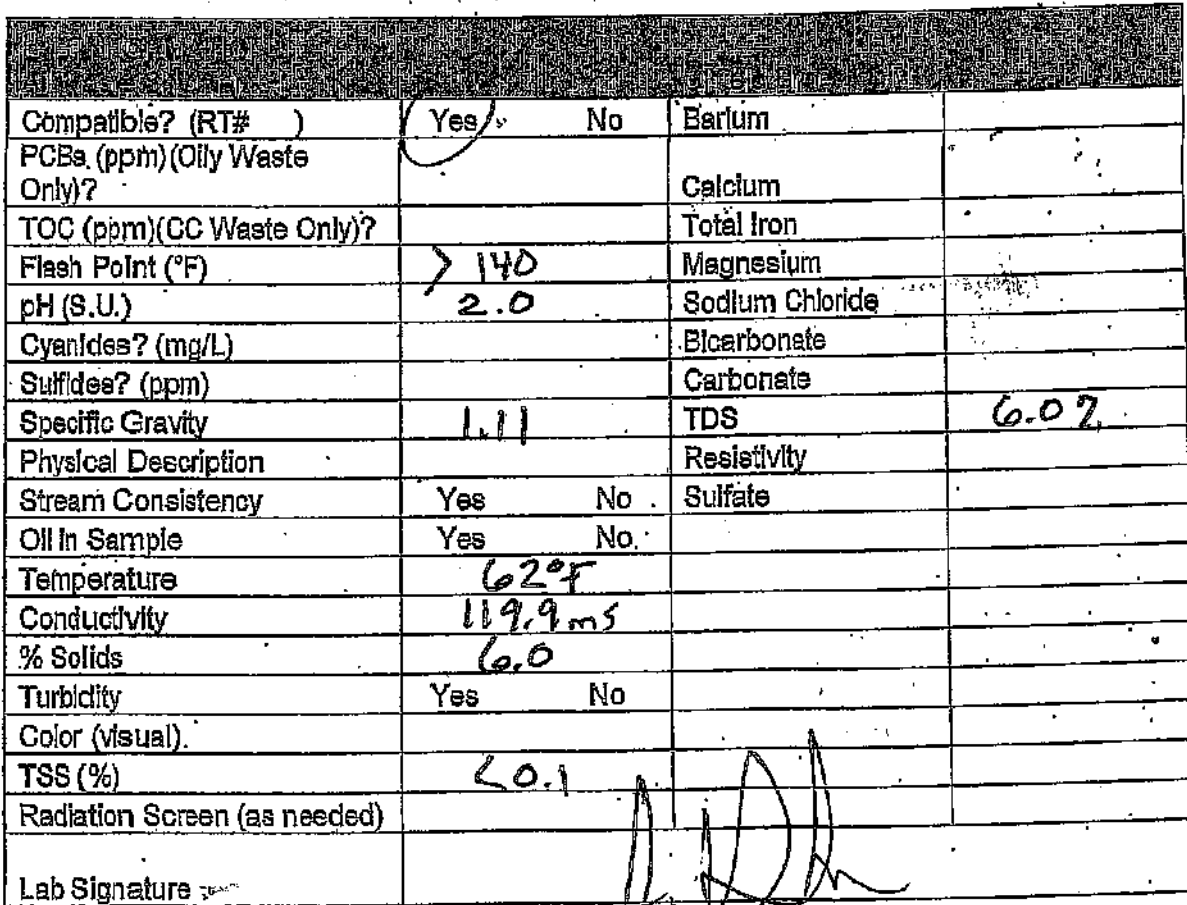 Compatible? (RT# ) Yes No Barium
PCBs (ppm)(Oily Waste
Only)? Calcium
TOC (ppm)(CC Waste Only)? Total Iron
Flash Point (°F) > 140 Magnesium
pH (S.U.) 2.0 Sodium Chloride
Cyanides? (mg/L) Bicarbonate
Sulfides? (ppm) Carbonate
Specific Gravity 1.11 TDS 6.02
Physical Description Resistivity
Stream Consistency Yes No Sulfate
Oil in Sample Yes No
Temperature 62°F
Conductivity 119.9 ms
% Solids 6.0
Turbidity Yes No
Color (visual)
TSS (%) <0.1
Radiation Screen (as needed)
Lab Signature